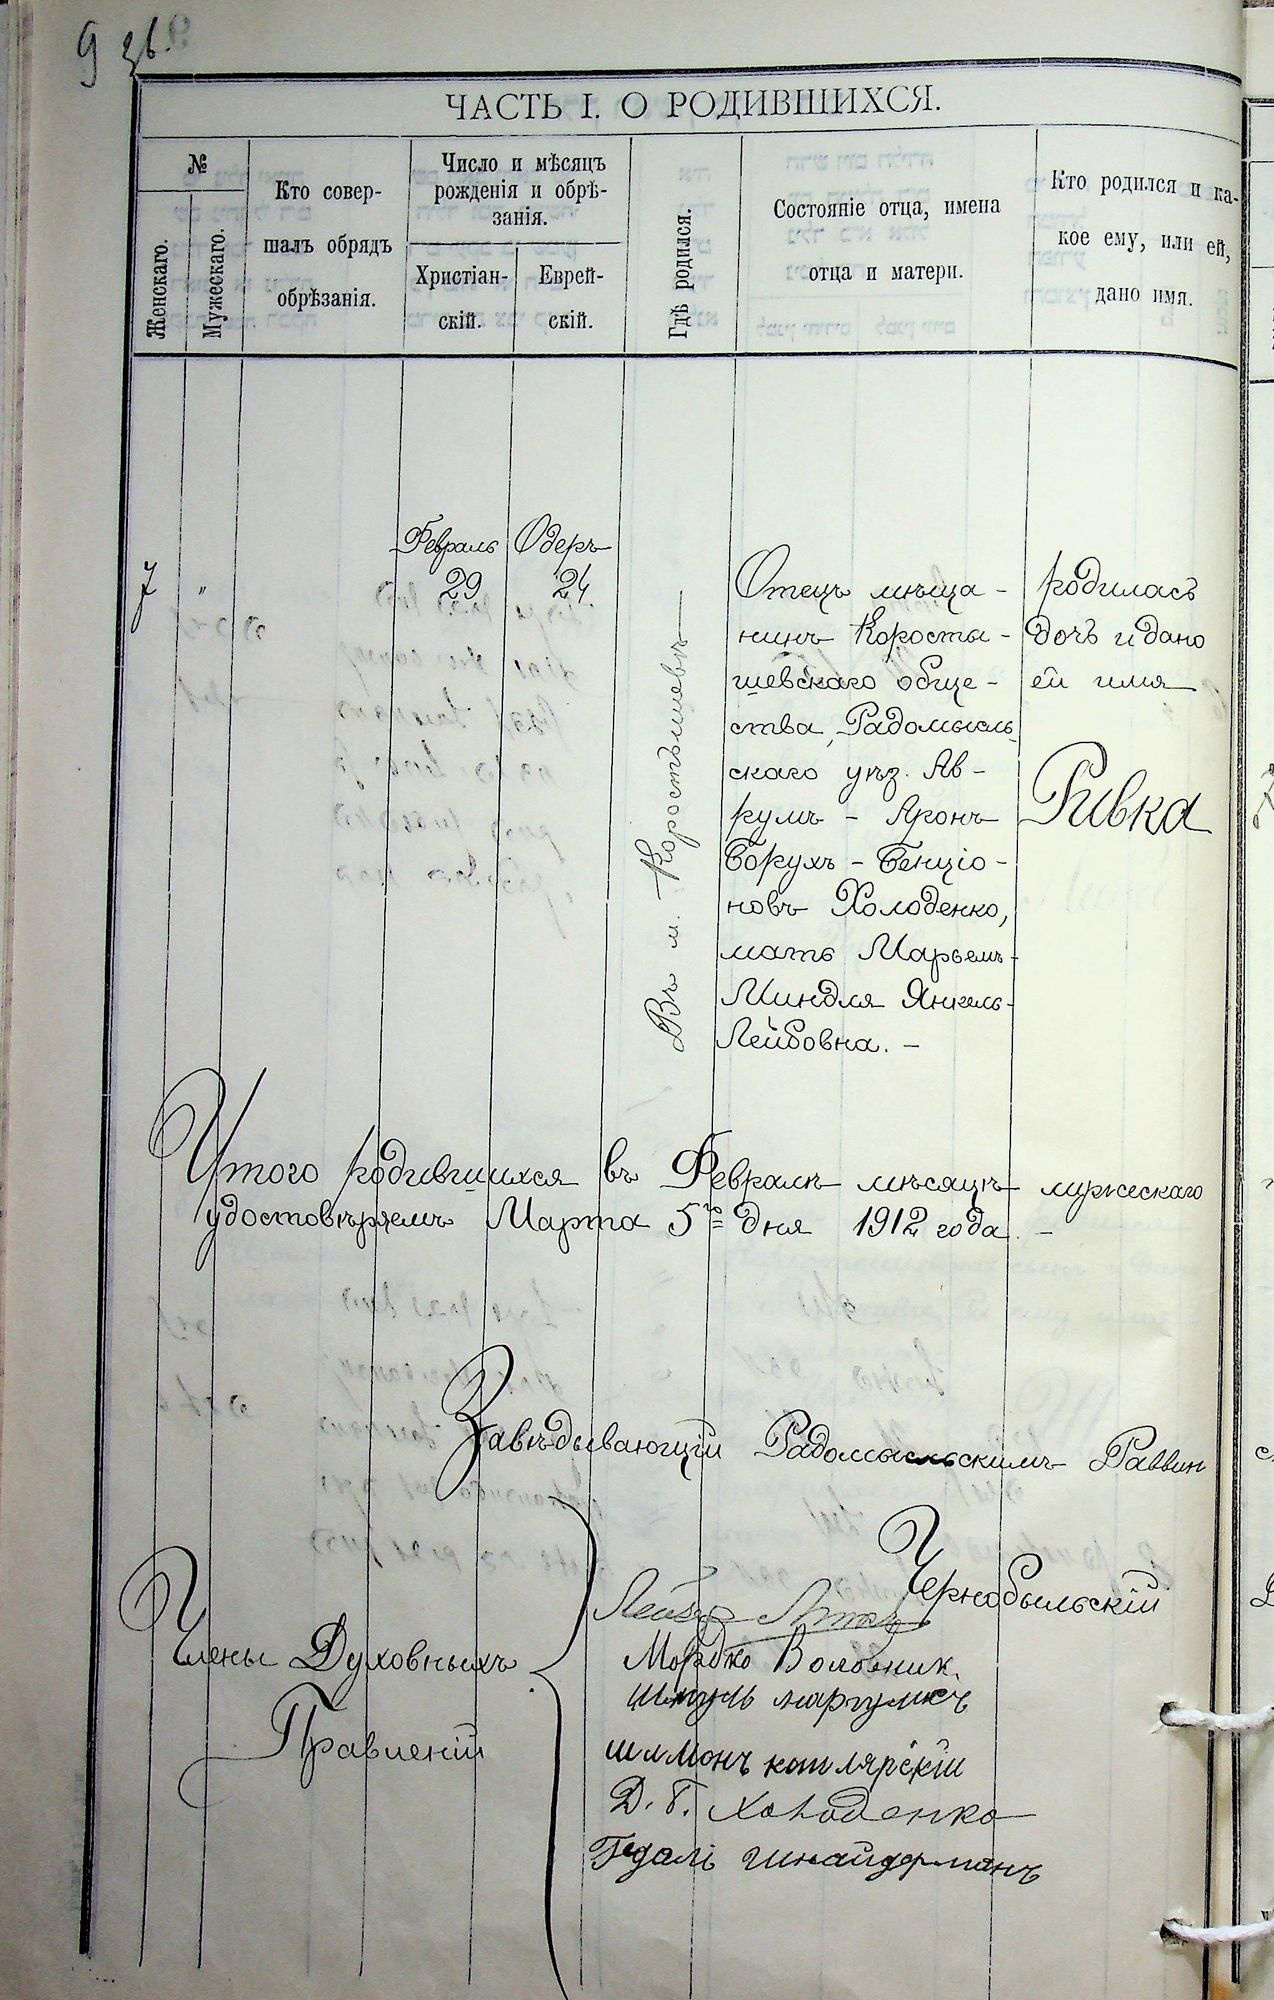 9 зв.
ЧАСТЬ I. О РОДИВШИХСЯ.
№
Женскаго.
Мужескаго.
Кто совер-
шалъ обрядъ
обрѣзанія.
Число и мѣсяцъ
рожденія и обрѣ-
занія.
Христіан-
скій.
Еврей-
скій.
Гдѣ родился.
Состояніе отца, имена
отца и матери.
Кто родился и ка-
кое ему, или ей,
дано имя.
7 "
Февраль
29
Одеръ
24
Въ м. Коростышевѣ
Отецъ мѣща-
нинъ Коросты-
шевскаго обще-
ства, Радомысль
скаго уѣз. Ав-
румъ - Аронъ
Борухъ - Бенціо-
новъ Холоденко,
мать Марьемъ-
Миндля Янкель-
Лейбовна. -
родилась
дочь и дано
ей имя
Ривка
Итого родившихся въ Февралѣ мѣсяцѣ мужескаго
удостовѣряемъ Марта 5го дня 1912 года. -
Завѣдывающій Радомысльскимъ Раввин
Чернобыльскій
Члены Духовныхъ
Правленій
Мордко Воловник
шмуль маргулисъ
шимонъ котлярскій
Д. Г. Холоденко
Гедалі шнайдерманъ